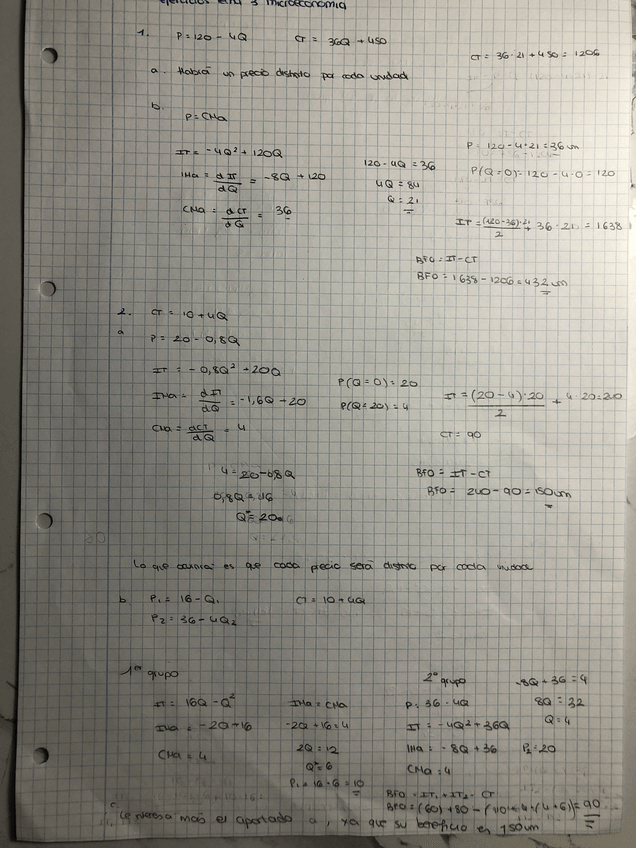 ejercicios 3 microeconomia
1. P = 120 - 4Q CT = 36Q + 450
CT = 36·21 + 450 = 1206
a. Habrá un precio distinto por cada unidad
b.
P = CMa
IT = -4Q² + 120Q
IMa = dIT/dQ = -8Q + 120
CMa = dCT/dQ = 36
120 - 4Q = 36
4Q = 84
Q = 21
P = 120 - 4·21 = 36 um
P(Q=0) = 120 - 4·0 = 120
IT = (120-36)·21/2 + 36·21 = 1638
BFO = IT - CT
BFO = 1638 - 1206 = 432 um
2. CT = 10 + 4Q
a
P = 20 - 0,8Q
IT = -0,8Q² + 20Q
IMa = dIT/dQ = -1,6Q + 20
CMa = dCT/dQ = 4
P(Q=0) = 20
P(Q=20) = 4
IT = (20-4)·20/2 + 4·20 = 240
CT = 90
4 = 20 - 0,8Q
0,8Q = 16
Q* = 20
BFO = IT - CT
BFO = 240 - 90 = 150 um
Lo que es que cada precio será distinto por cada unidad
b P₁ = 16 - Q₁ CT = 10 + 4Q
P₂ = 36 - 4Q₂
1er grupo
IT = 16Q - Q²
IMa = -2Q + 16
CMa = 4
IMa = CMa
-2Q + 16 = 4
2Q = 12
Q* = 6
P₁ = 16 - 6 = 10
2º grupo
P = 36 - 4Q
IT = -4Q² + 36Q
IMa = -8Q + 36
CMa = 4
-8Q + 36 = 4
8Q = 32
Q = 4
P₂ = 20
BFO = IT₁ + IT₂ - CT
BFO = (60) + 80 - (10 + 4·(4+6)) = 90
c. Le interesa más el apartado a, ya que su beneficio es 150 um